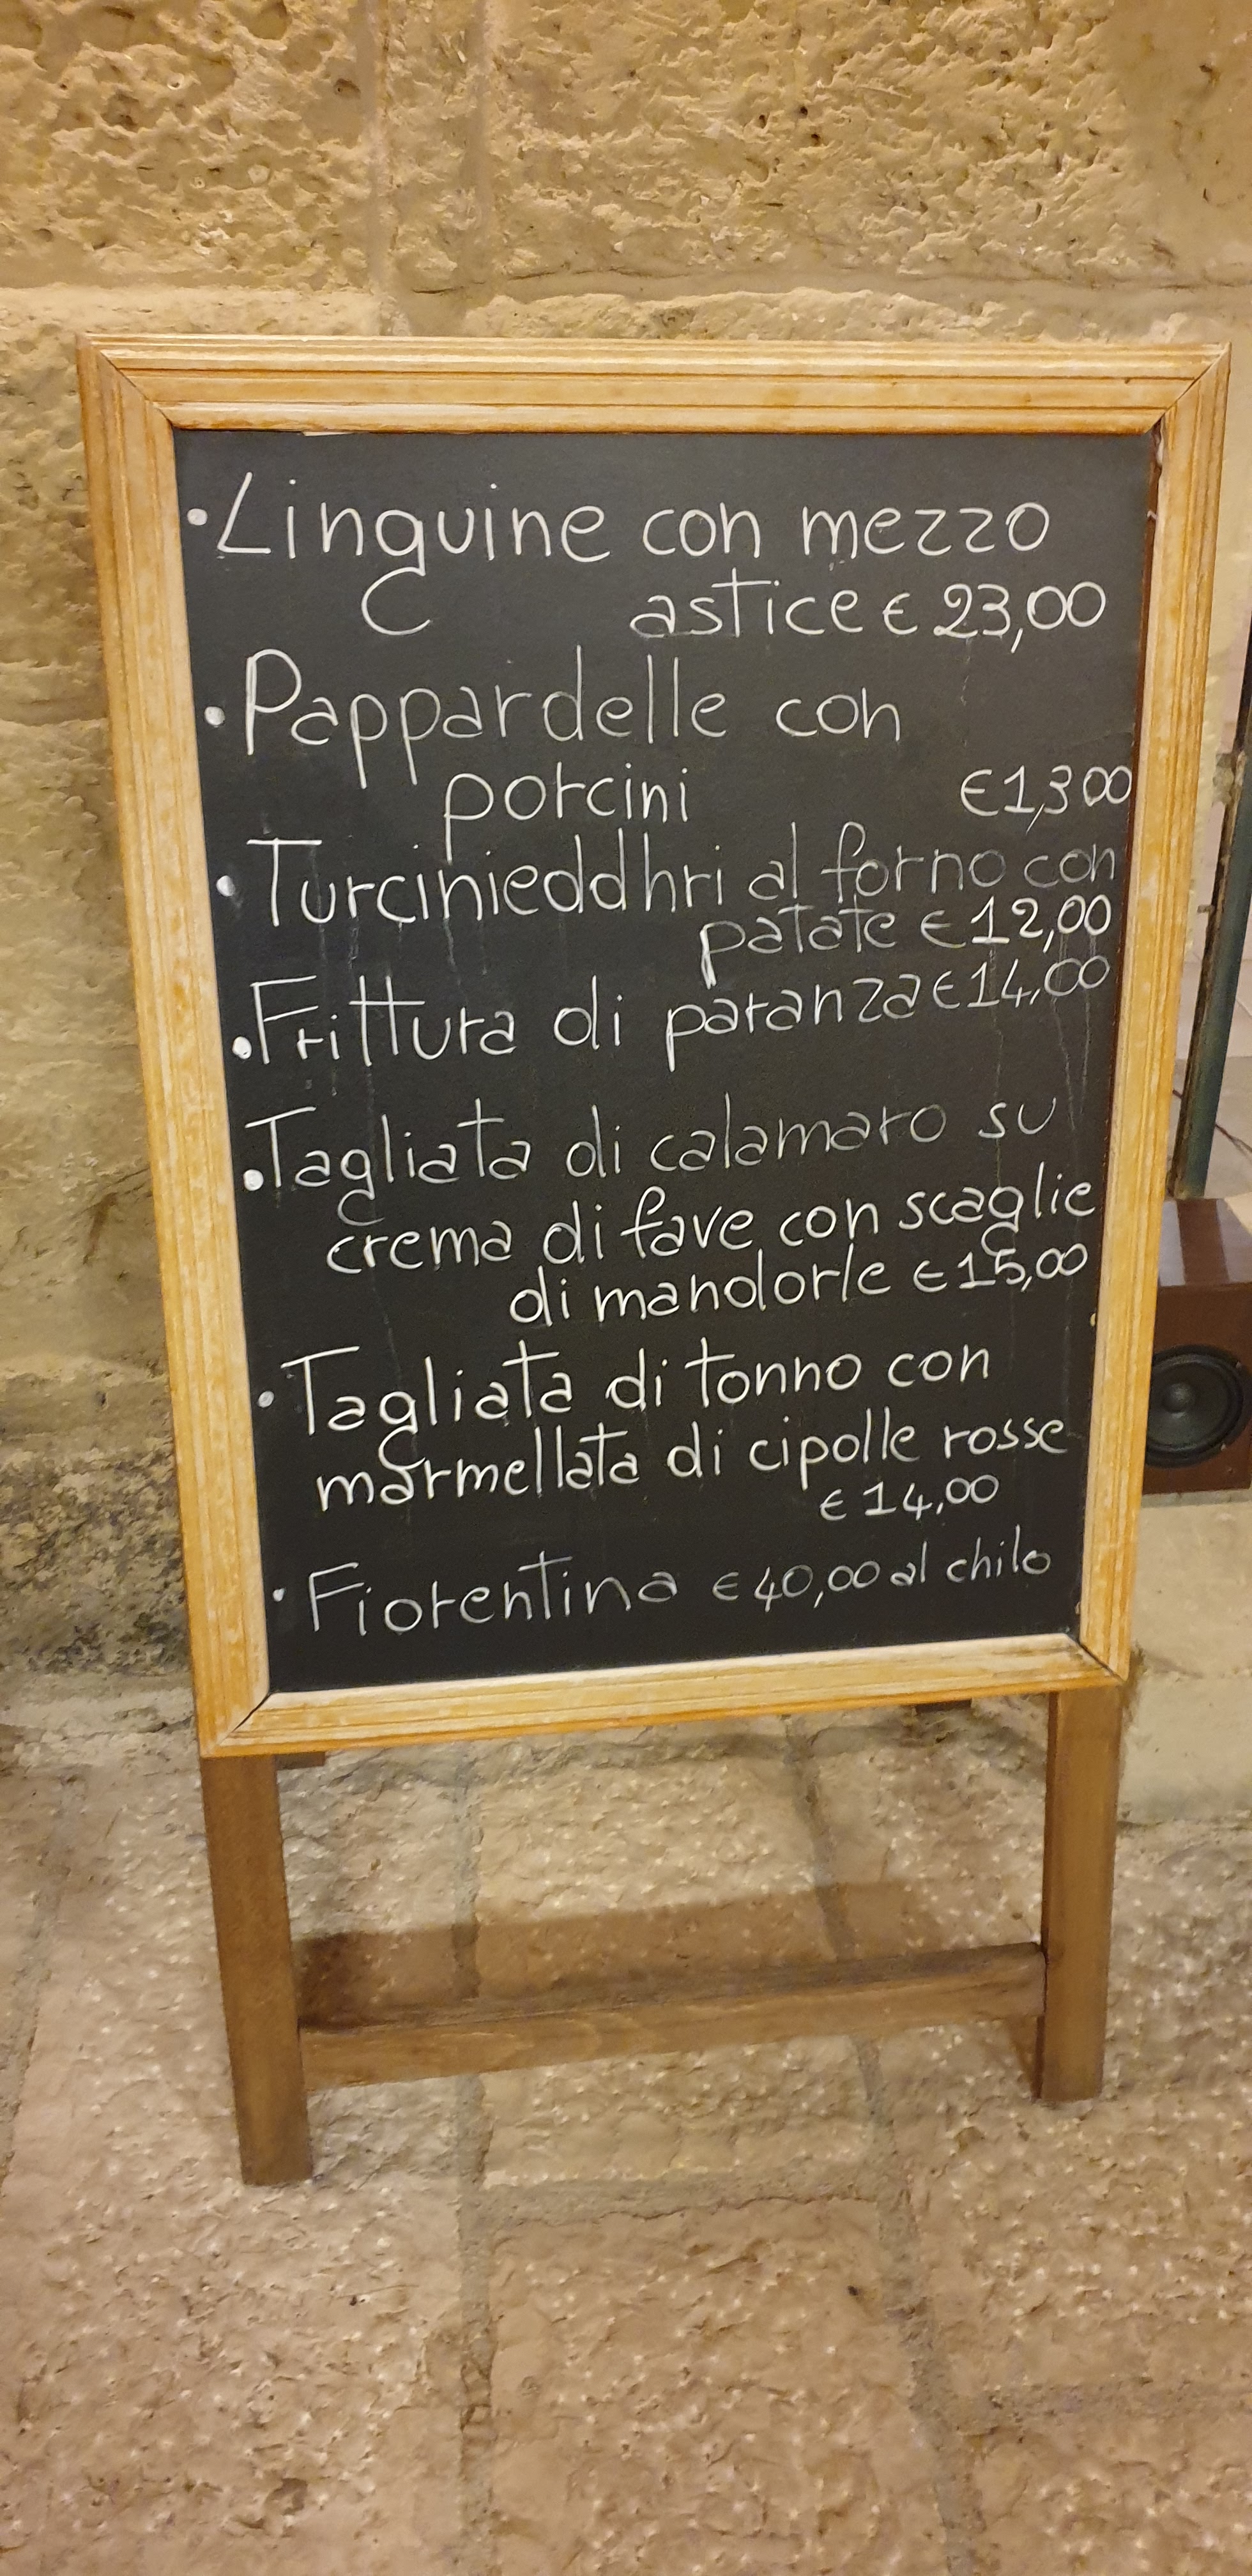 • Linguine con mezzo
astice € 23,00
• Pappardelle con
porcini €1,300
• Turcinieddhri al forno con
patate € 12,00
• Frittura di paranza € 14,00
• Tagliata di calamaro su
crema di fave con scaglie
di mandorle € 15,00
• Tagliata di tonno con
marmellata di cipolle rosse
€ 14,00
• Fiorentina € 40,00 al chilo